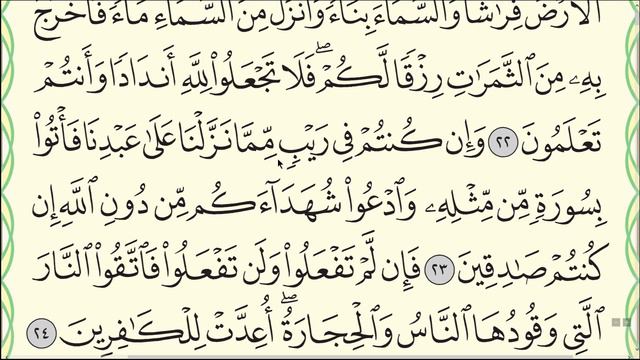 الْأَرْضَ فِرَاشًا وَالسَّمَاءَ بِنَاءً وَأَنزَلَ مِنَ السَّمَاءِ مَاءً فَأَخْرَجَ
بِهِۦ مِنَ ٱلثَّمَرَٰتِ رِزْقًا لَّكُمْ ۖ فَلَا تَجْعَلُوا۟ لِلَّهِ أَندَادًا وَأَنتُمْ
تَعْلَمُونَ ٢٢ وَإِن كُنتُمْ فِى رَيْبٍ مِّمَّا نَزَّلْنَا عَلَىٰ عَبْدِنَا فَأْتُوا۟
بِسُورَةٍ مِّن مِّثْلِهِۦ وَٱدْعُوا۟ شُهَدَآءَكُم مِّن دُونِ ٱللَّهِ إِن
كُنتُمْ صَٰدِقِينَ ٢٣ فَإِن لَّمْ تَفْعَلُوا۟ وَلَن تَفْعَلُوا۟ فَٱتَّقُوا۟ ٱلنَّارَ
ٱلَّتِى وَقُودُهَا ٱلنَّاسُ وَٱلْحِجَارَةُ ۖ أُعِدَّتْ لِلْكَٰفِرِينَ ٢٤